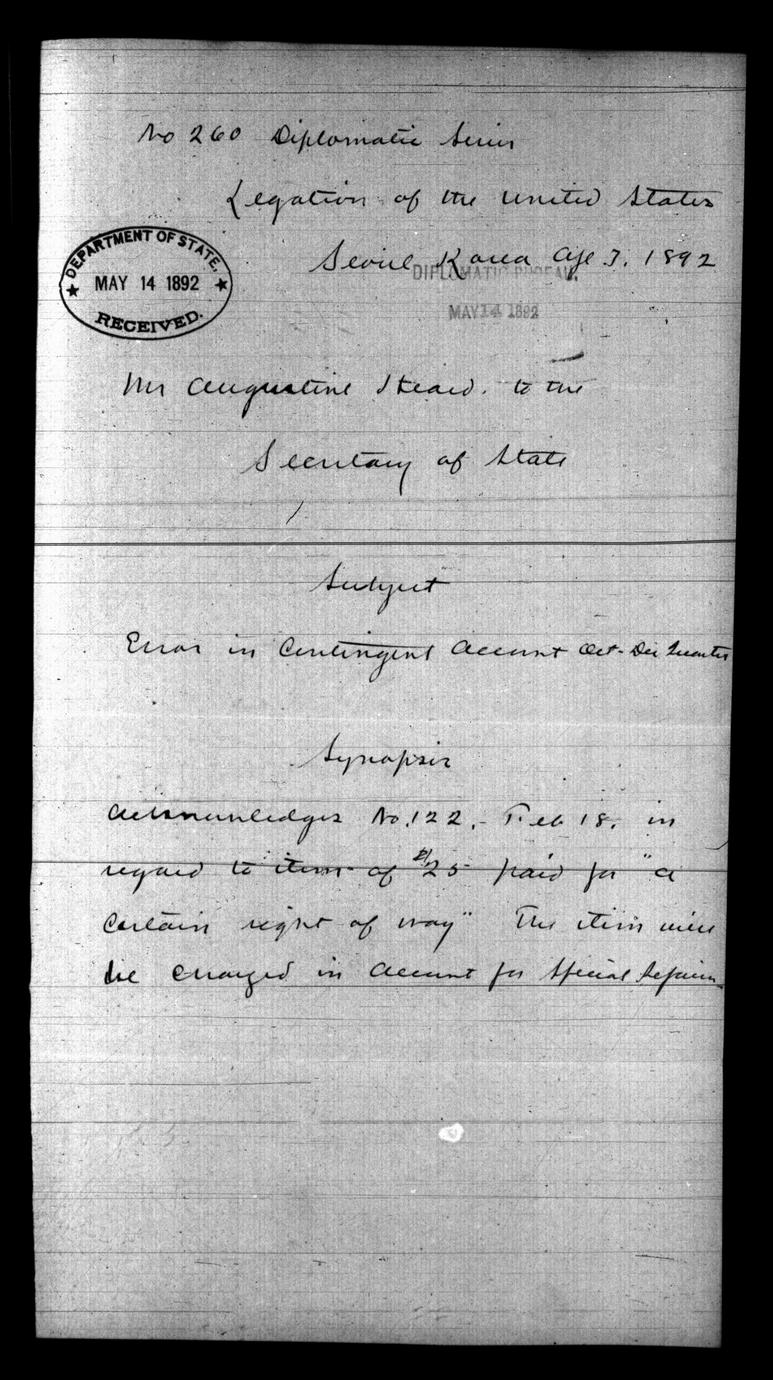 No 260 Diplomatic Series
Legation of the United States
Seoul Korea Apl 7. 1892
DEPARTMENT OF STATE.
MAY 14 1892
RECEIVED.
DIPLOMATIC BUREAU.
MAY 14 1892
Mr Augustine Heard. to the
Secretary of State
Subject
Error in Contingent Account Oct-Dec Quarter
Synopsis
Acknowledges No. 122, - Feb 18. in
regard to item of $25 paid for "a
certain right of way" The item will
be charged in Account for Special Repairs.